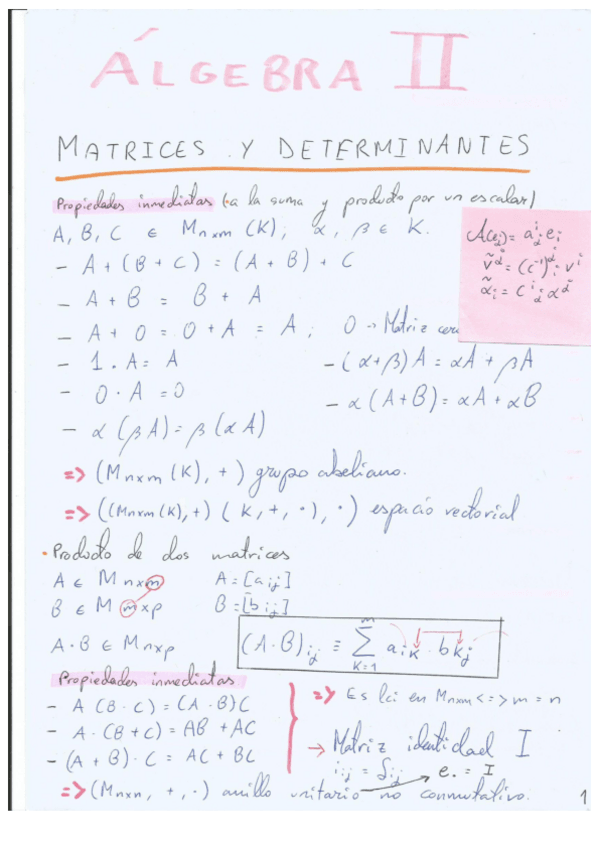 ÁLGEBRA II
MATRICES Y DETERMINANTES
Propiedades inmediatas (a la suma y producto por un escalar)
A, B, C ∈ Mnxm (K); α, β ∈ K.
A(ej) = aⁱj ei
ṽʲ = (c⁻¹)ʲi vⁱ
α̃i = cⁱj αʲ
- A + (B + C) = (A + B) + C
- A + B = B + A
- A + 0 = 0 + A = A; 0 → Matriz
- 1 · A = A
- (α+β)A = αA + βA
- 0 · A = 0
- α(A+B) = αA + αB
- α(βA) = β(αA)
=> (Mnxm(K), +) grupo abeliano.
=> ((Mnxm(K),+) (K,+,·),·) espacio vectorial
· Producto de dos matrices
A ∈ Mnxm A = [aij]
B ∈ Mmxp B = [bij]
A·B ∈ Mnxp
(A·B)ij ≡ Σ m K=1 aik · bkj
Propiedades inmediatas
- A(B·C) = (A·B)C
- A·(B+C) = AB + AC
- (A+B)·C = AC + BC
=> Es lci en Mnxm <=> m = n
→ Matriz identidad I
iij = δij e. = I
=> (Mnxn, +, ·) anillo unitario no conmutativo.
1